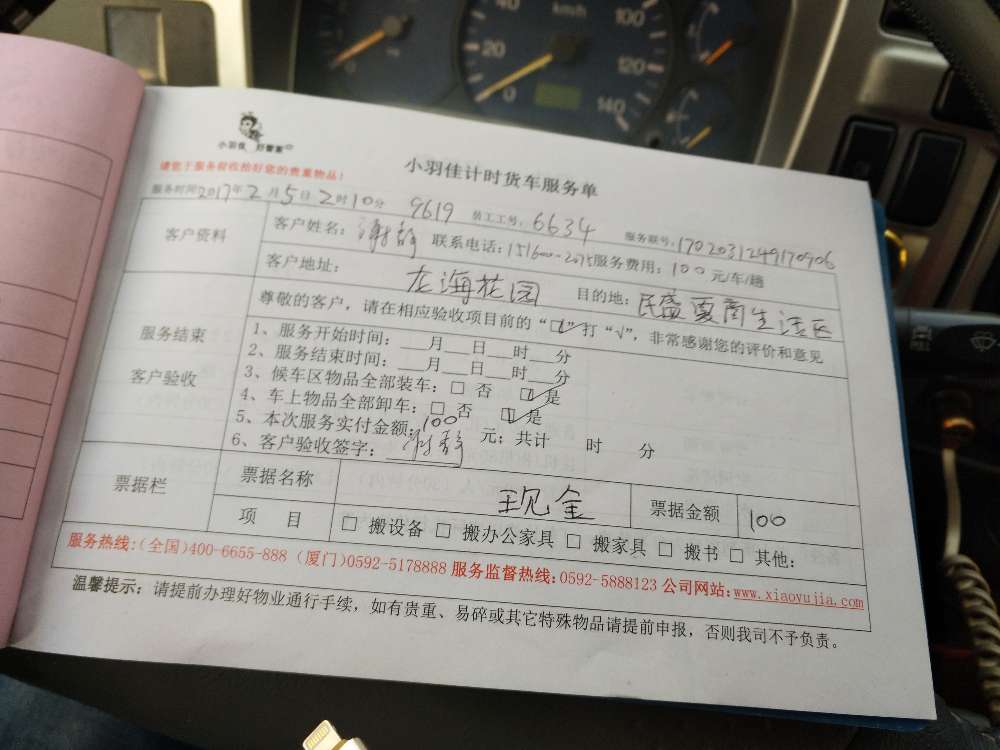 40 km/h 100
20 120
0 140
小羽佳 好管家
小羽佳计时货车服务单
请您于服务前收拾好您的贵重物品！
服务时间2017年2月5日2时10分 9619 员工工号：6634 服务联号：1702031249170906
客户资料 客户姓名：谢静 联系电话：151600-2075 服务费用：100元/车/趟
客户地址：龙海花园 目的地：民盛夏商生活区
服务结束
客户验收
尊敬的客户，请在相应验收项目前的“□”打“√”，非常感谢您的评价和意见
1、服务开始时间：___月___日___时___分
2、服务结束时间：___月___日___时___分
3、候车区物品全部装车：□ 否 ☑ 是
4、车上物品全部卸车：□ 否 ☑ 是
5、本次服务实付金额：100 元；共计 时 分
6、客户验收签字：谢静
票据栏 票据名称 现金 票据金额 100
项 目 □ 搬设备 □ 搬办公家具 □ 搬家具 □ 搬书 □ 其他：
服务热线：(全国)400-6655-888 (厦门)0592-5178888 服务监督热线：0592-5888123 公司网站：www.xiaoyujia.com
温馨提示：请提前办理好物业通行手续，如有贵重、易碎或其它特殊物品请提前申报，否则我司不予负责。